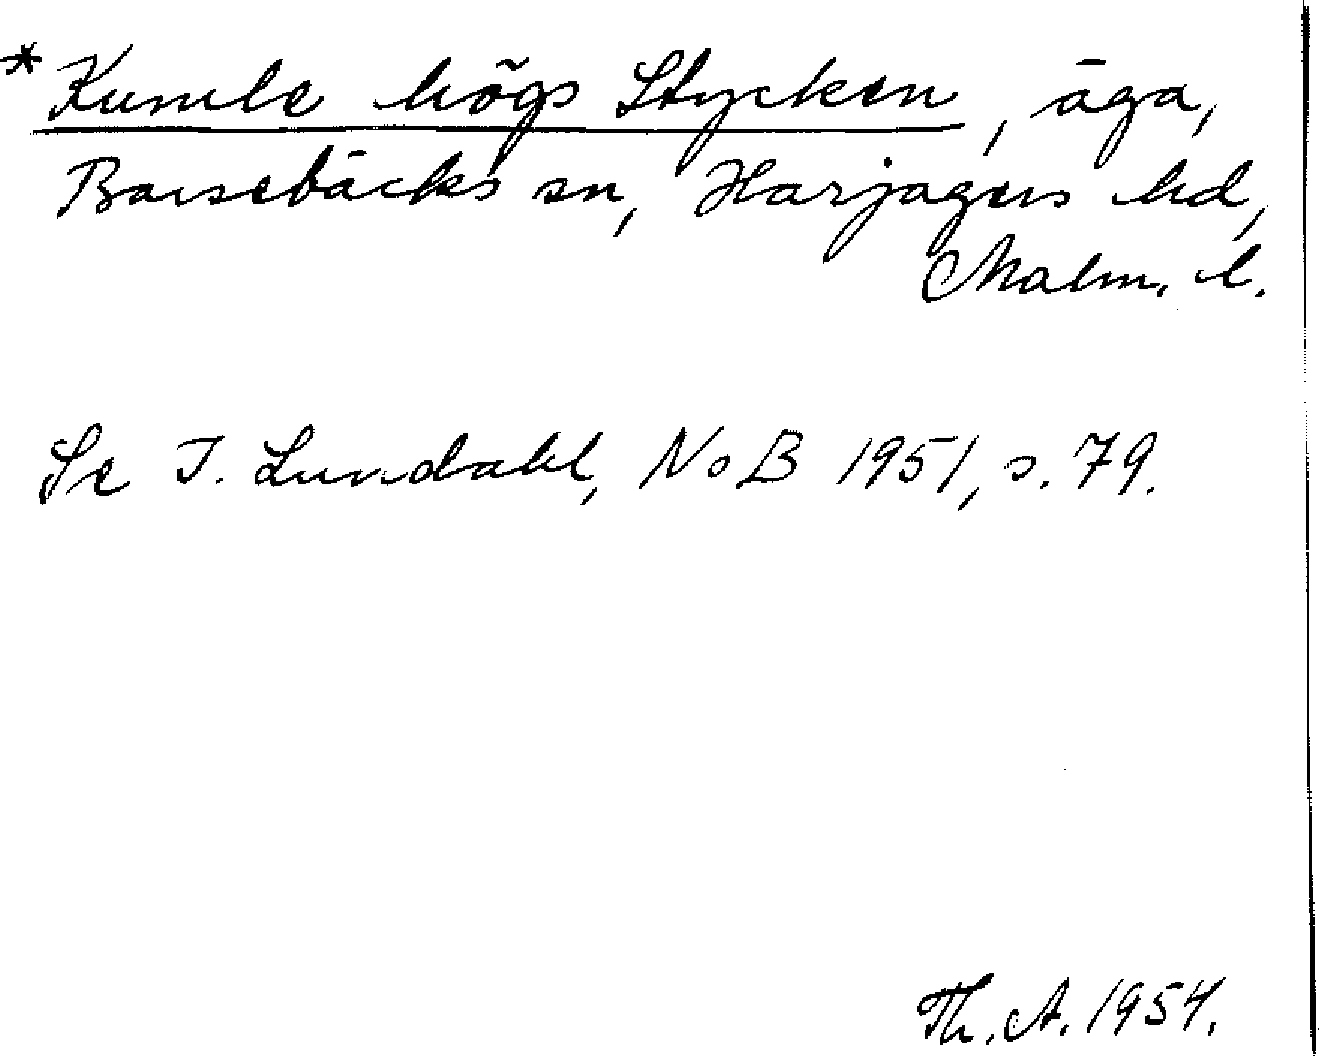 *Kumle högs Stycken, äga,
Barsebäcks sn, Harjagers hd,
Malm. l.
Se I. Lundahl, NoB 1951, s. 79.
Th. A. 1954.